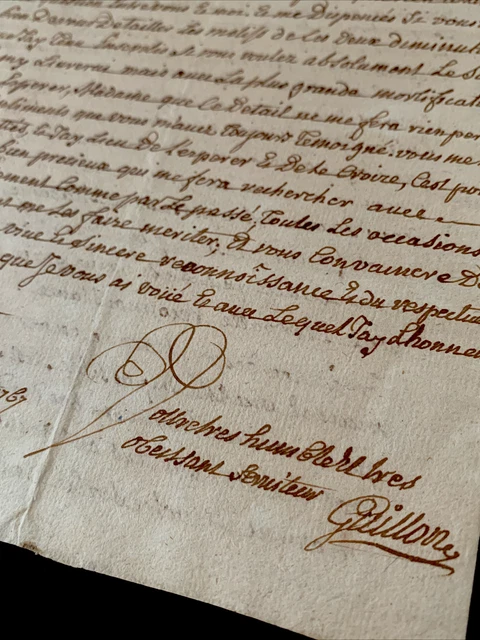 entre le noir. Je me Dispencé Si vous
Donner Detailler Les motifs de Les Deux diminuti
Jay L'eau Ensemble Si vous voulez absolument Le S
my Livrerai mais avec La plus grande mortificat
Esperer, Madame que Ce Detail ne me fera rien per
timents que vous m'avez Toujours Temoigné. vous me
tés, & Jay Lieu De L'esperer & De Le Croire, C'est po
bien precieux qui me fera rechercher avec
ment Comme par Le passé, Toutes Les occasions
me Les faire meriter, Et vous Convaincre D
vive & Sincere reconnoissance & du respectu
que Je vous ai voüé & avec Lequel Jay L'honneu
767
Votre tres humble Et tres
obeissant Serviteur
Guillon